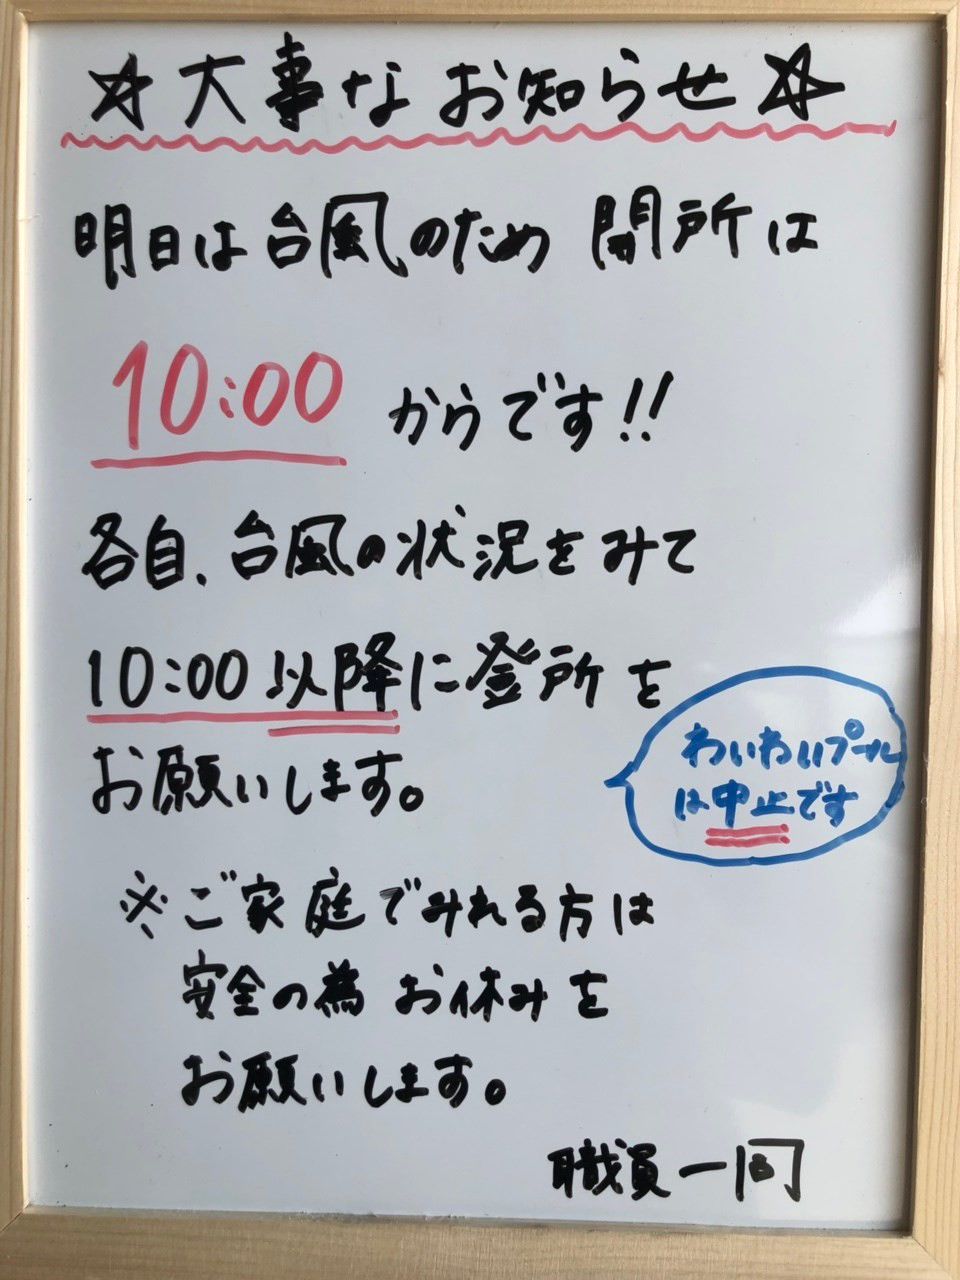 ☆大事なお知らせ☆
明日は台風のため 開所は
10:00 からです!!
各自、台風の状況をみて
10:00 以降に登所を
お願いします。
わいわいプール
は中止です
※ご家庭でみれる方は
安全の為 お休みを
お願いします。
職員一同